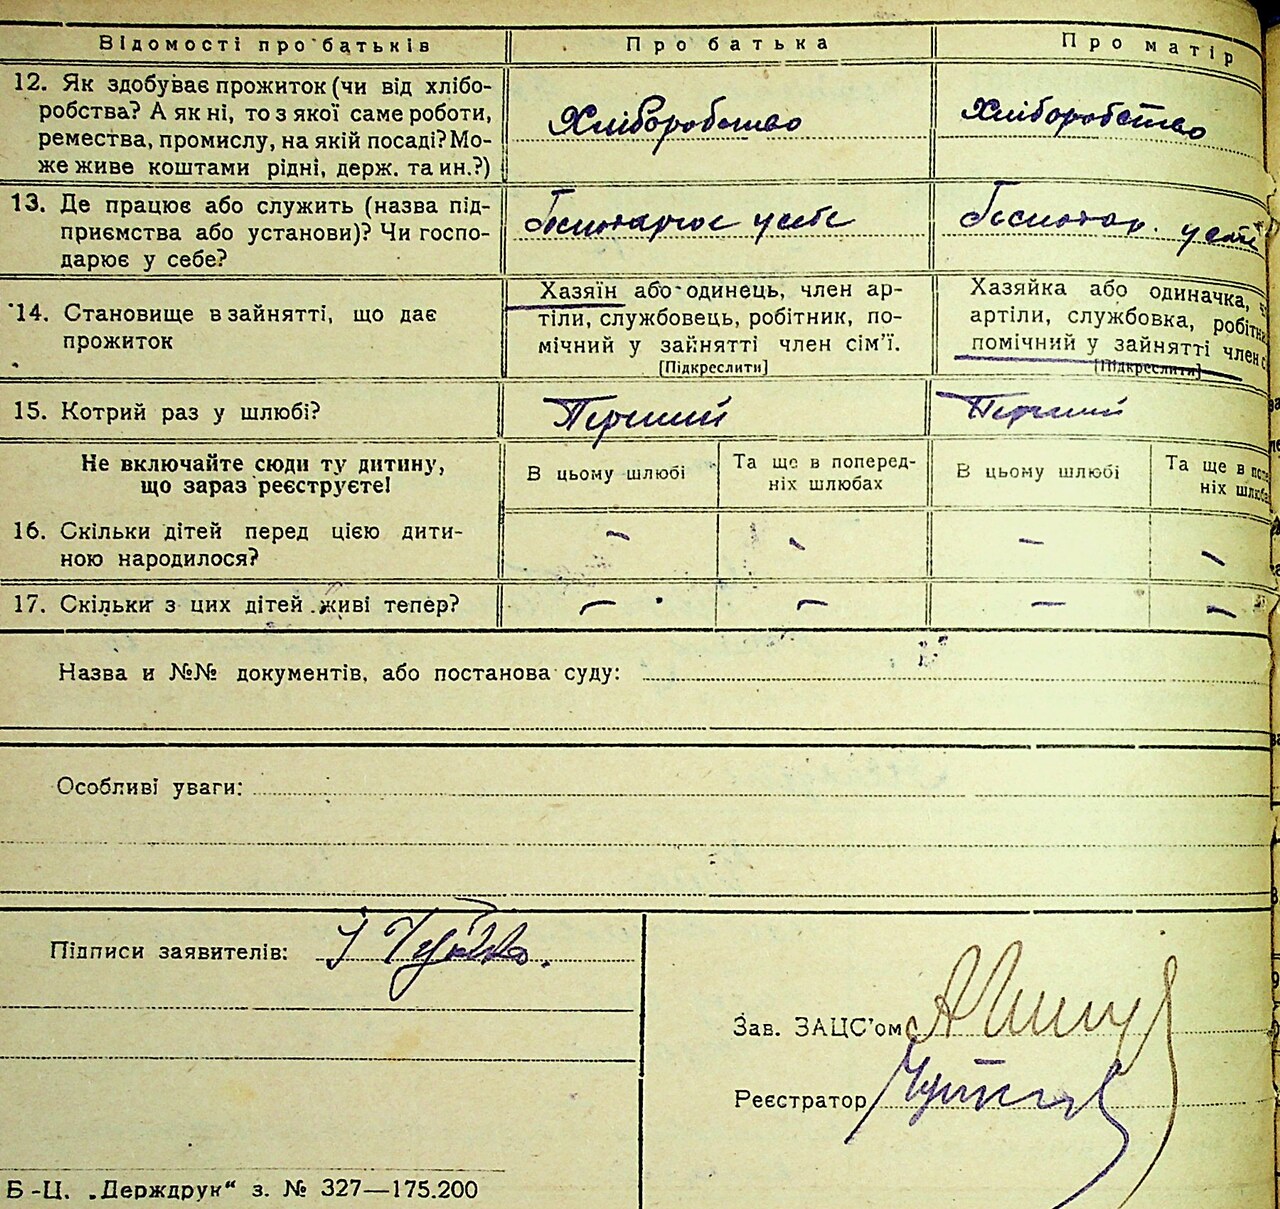 Відомості про батьків Про батька Про матір
12. Як здобуває прожиток (чи від хлібо-
робства? А як ні, то з якої саме роботи,
ремества, промислу, на якій посаді? Мо-
же живе коштами рідні, держ. та ин.?)
Хліборобство Хліборобство
13. Де працює або служить (назва під-
приємства або установи)? Чи госпо-
дарює у себе?
Господарює у себе Господар. у себе
14. Становище в зайнятті, що дає
прожиток
Хазяїн або одинець, член ар-
тіли, службовець, робітник, по-
мічний у зайнятті член сім'ї.
[Підкреслити]
Хазяйка або одиначка,
артіли, службовка, робітн
помічний у зайнятті член с
[Підкреслити]
15. Котрий раз у шлюбі? Перший Перший
Не включайте сюди ту дитину,
що зараз реєструєте!
В цьому шлюбі
Та ще в поперед-
ніх шлюбах
В цьому шлюбі
Та ще в попе
ніх шлюбах
16. Скільки дітей перед цією дити-
ною народилося?
– – – –
17. Скільки з цих дітей живі тепер? – – – –
Назва и №№ документів, або постанова суду:
Особливі уваги:
Підписи заявителів:
Зав. ЗАЦС'ом
Реєстратор
Б-Ц. „Держдрук“ з. № 327—175.200